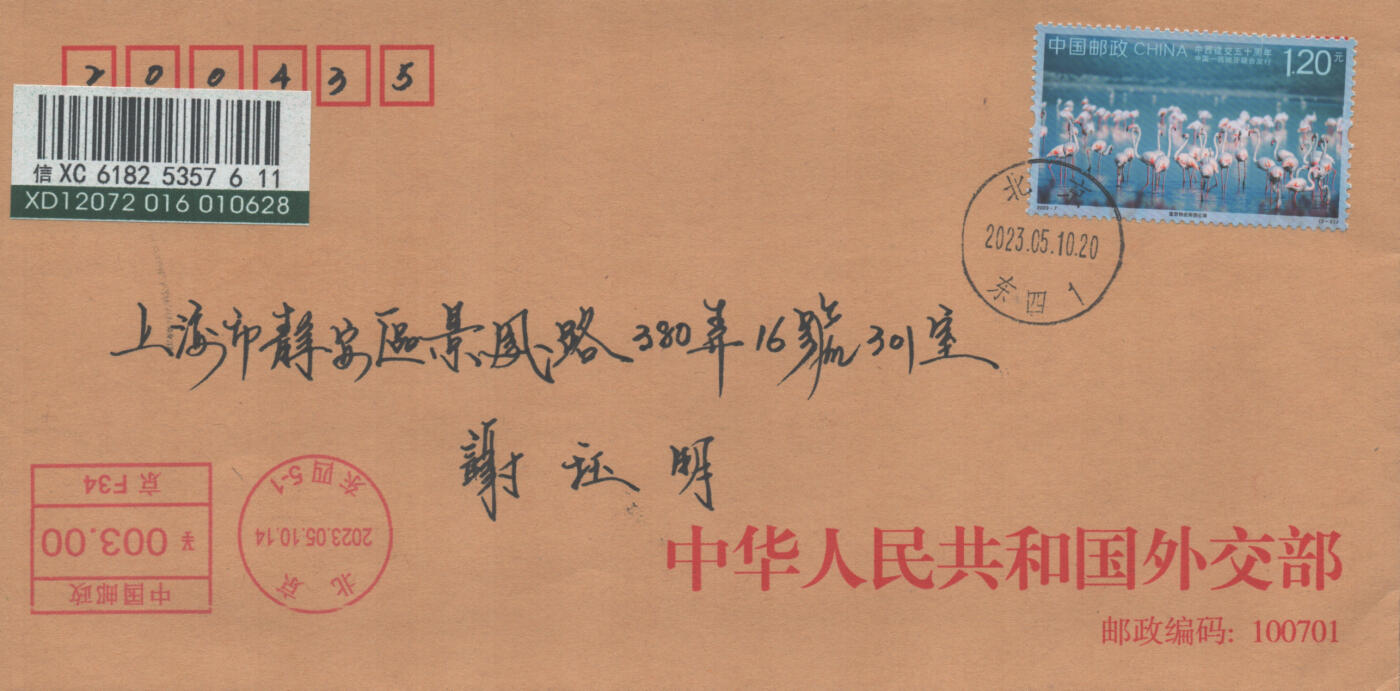 200435
中国邮政 CHINA 中西建交五十周年
中国—西班牙联合发行
1.20元
信 XC 6182 5357 6 11
XD12072 016 010628
2023-7
(2-1)J
北京
2023.05.10.20
东四 1
上海市靜安區景鳳路380弄16號301室
謝玨明
京 F34
¥ 003.00
中国邮政
东四 5-1
2023.05.10.14
北京
中华人民共和国外交部
邮政编码: 100701